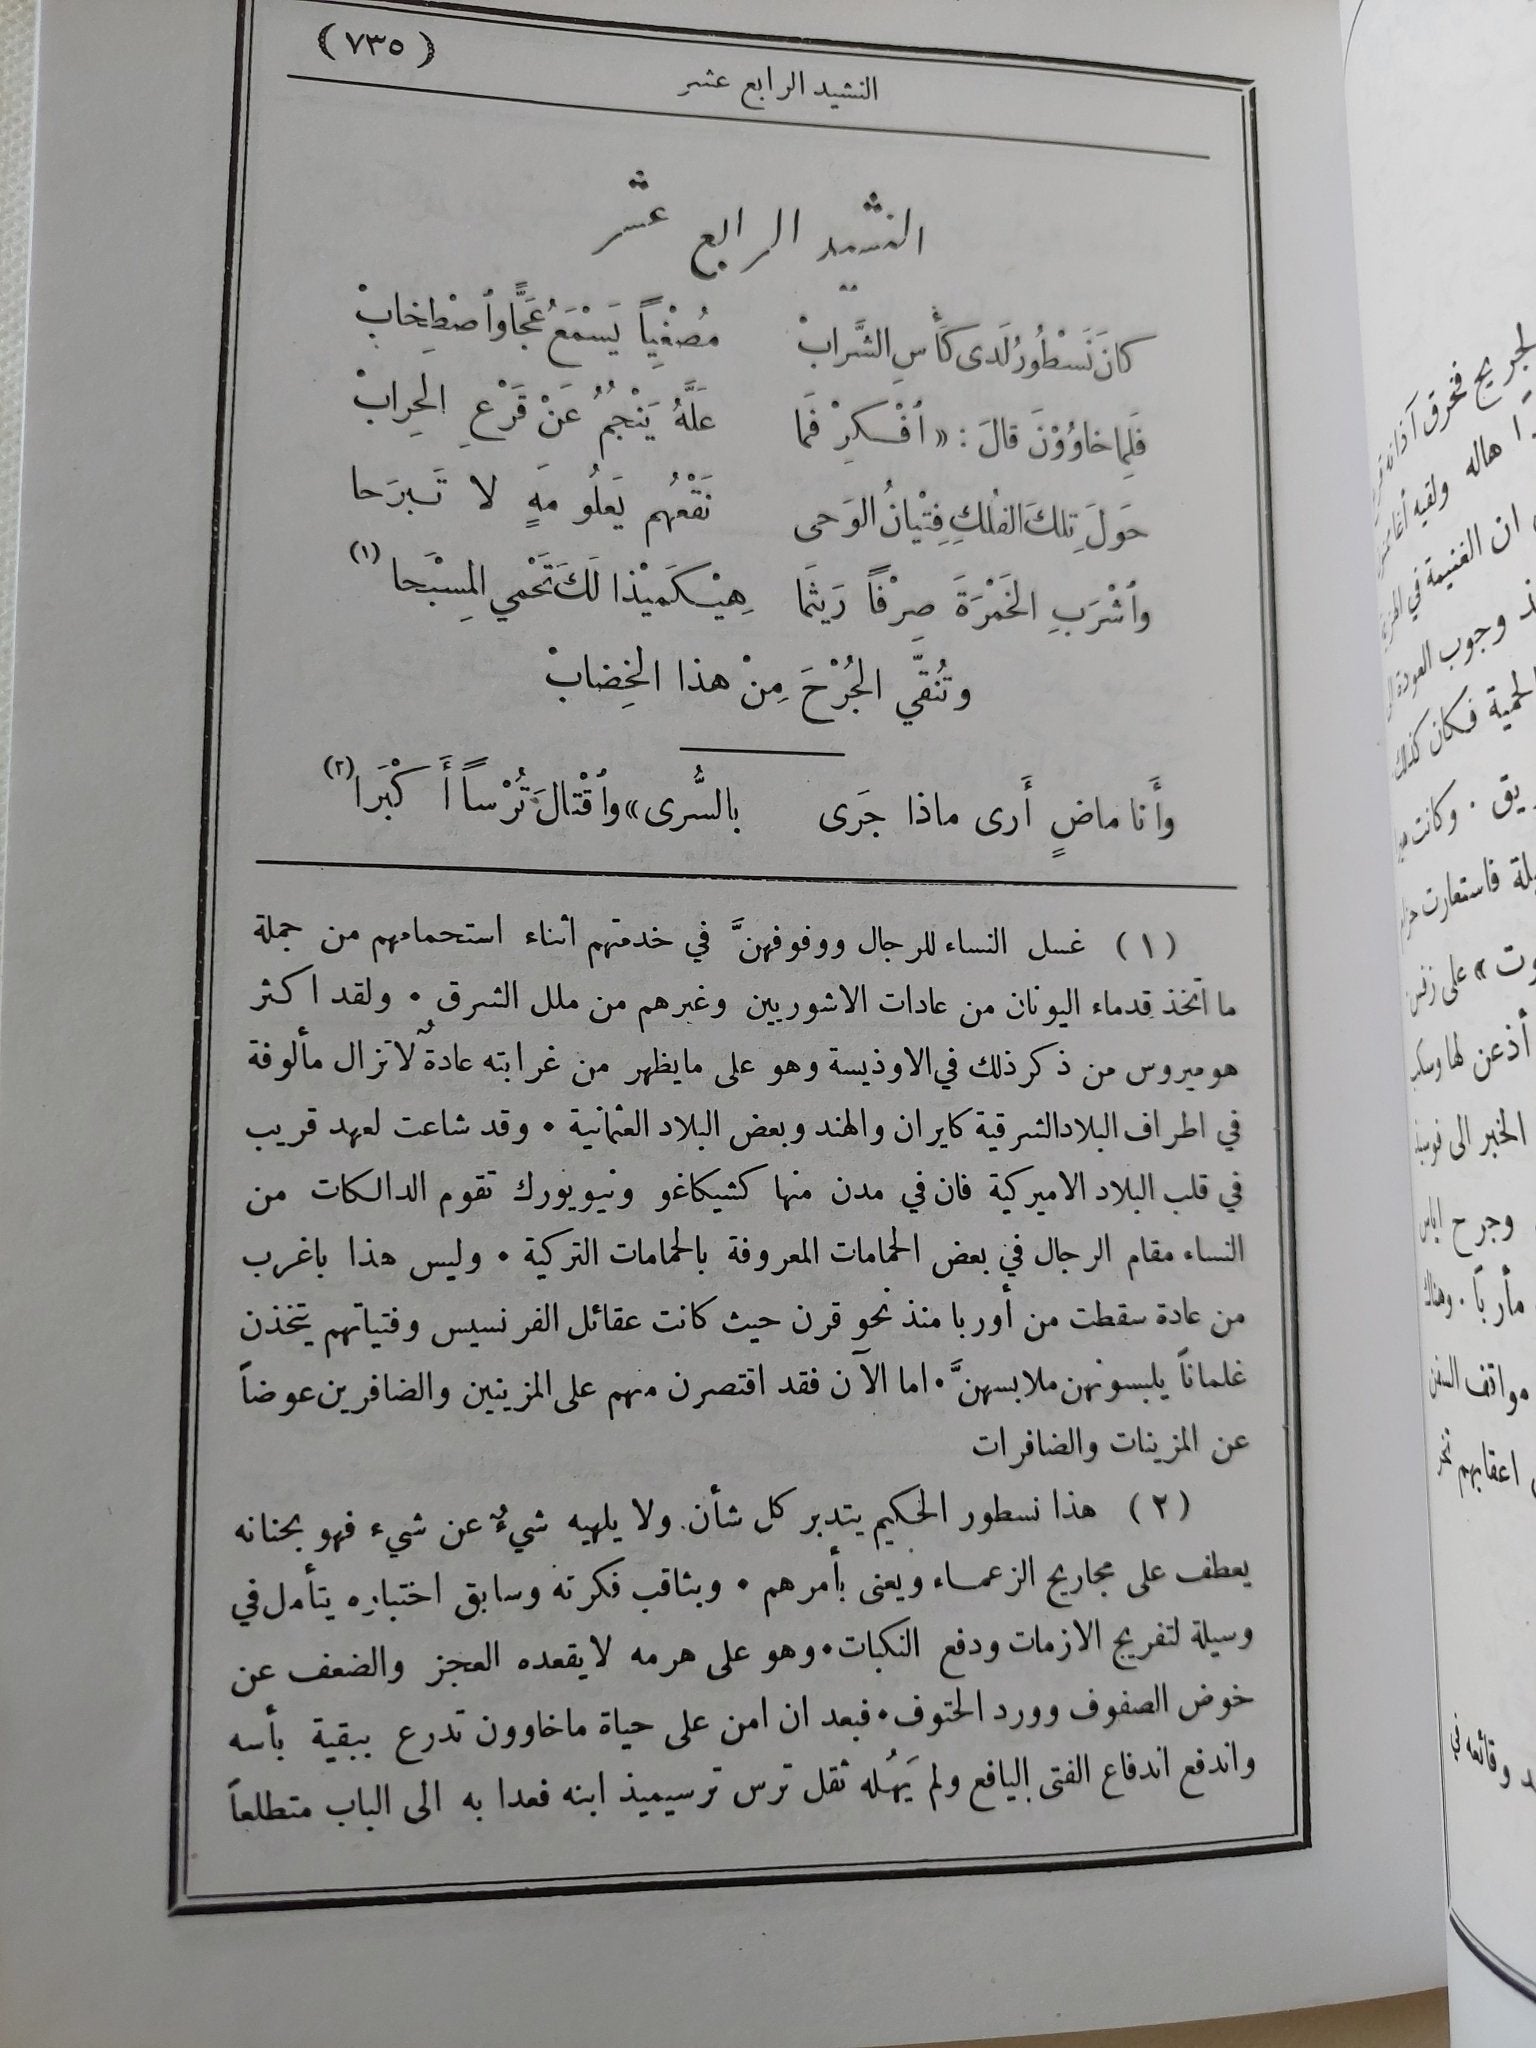 (٧٣٥)
النشيد الرابع عشر
النشيد الرابع عشر
كانَ نَسْطُورُ لَدى كَأْسِ الشَّرابْ مُصْغِياً يَسْمَعُ عَجًّا وٱصْطِخابْ
فَلِماخاوُوْنَ قالَ : « ٱفْـكِرْ فَمَا عَلَّهُ يَنْجُمُ عَنْ قَرْعِ الحِرابْ
حَولَ تِلكَ الفُلكِ فِتْيانُ الوَحى نَقْعُهُم يَعلُو مَهٍ لا تَـبرَحا
وٱشْرَبِ الخَمْرَةَ صِرْفاً رَيثَمَا هِيْـكَمِيْذا لَكَ تَحْمي المِسْبَحا (١)
وتُنقّي الجُرْحَ مِنْ هذا الخِضابْ
وأَنا ماضٍ أَرى ماذا جَرَى بالسُّرى» وٱقْتالَ تُرْساً أَكْبَرا (٢)
(١) غسل النساء للرجال ووقوفهنَّ في خدمتهم اثناء استحمامهم من جملة
ما اتخذ قدماء اليونان من عادات الاشوريين وغيرهم من ملل الشرق . ولقد اكثر
هوميروس من ذكر ذلك في الاوذيسة وهو على ما يظهر من غرابته عادةٌ لا تزال مألوفة
في اطراف البلاد الشرقية كايران والهند وبعض البلاد العثمانية . وقد شاعت لعهد قريب
في قلب البلاد الاميركية فان في مدن منها كشيكاغو ونيويورك تقوم الدالكات من
النساء مقام الرجال في بعض الحمامات المعروفة بالحمامات التركية . وليس هذا باغرب
من عادة سقطت من أوربا منذ نحو قرن حيث كانت عقائل الفرنسيس وفتياتهم يتخذن
غلماناً يلبسونهن ملابسهنَّ . اما الآن فقد اقتصرن منهم على المزينين والضافرين عوضاً
عن المزينات والضافرات
(٢) هذا نسطور الحكيم يتدبر كل شأن ولا يلهيه شيءٌ عن شيء فهو بحنانه
يعطف على مجاريح الزعماء ويعنى بأمرهم . وبثاقب فكرته وسابق اختباره يتأمل في
وسيلة لتفريج الازمات ودفع النكبات . وهو على هرمه لا يقعده العجز والضعف عن
خوض الصفوف وورد الحتوف . فبعد ان امن على حياة ماخاوون تدرع ببقية بأسه
واندفع اندفاع الفتى اليافع ولم يَهُله ثقل ترس ترسيميذ ابنه فعدا به الى الباب متطلعاً